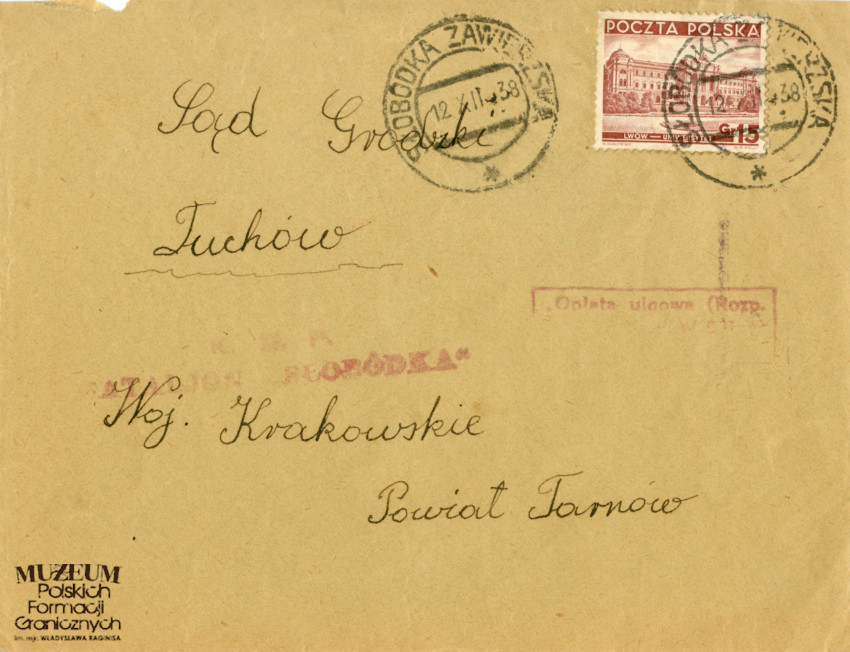 SŁOBÓDKA ZAWIERZSKA
12.XII.38
POCZTA POLSKA
LWÓW — UNIWERSYTET
Gr 15
SŁOBÓDKA ZAWIERZSKA
12. 38
Sąd Grodzki
Tuchów
„Opłata ulgowa (Rozp.
"SŁOBÓDKA"
Woj. Krakowskie
Powiat Tarnów
MUZEUM
Polskich
Formacji
Granicznych
im. mjr. WŁADYSŁAWA RAGINISA